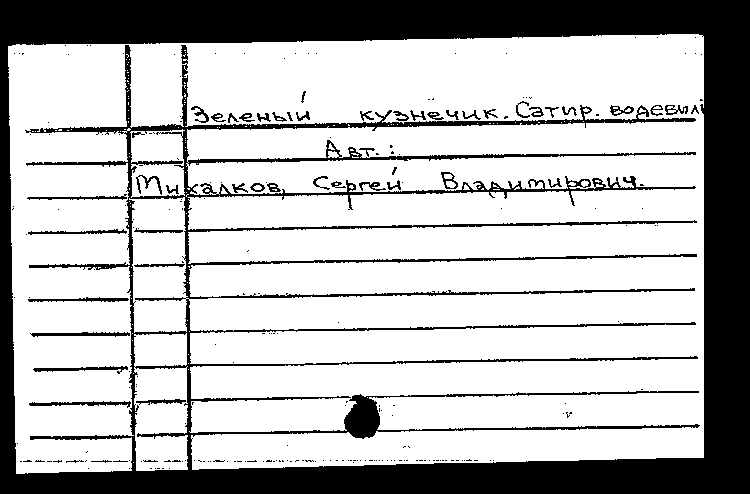 Зеленый кузнечик. Сатир. водевиль
Авт.:
Михалков, Сергей Владимирович.